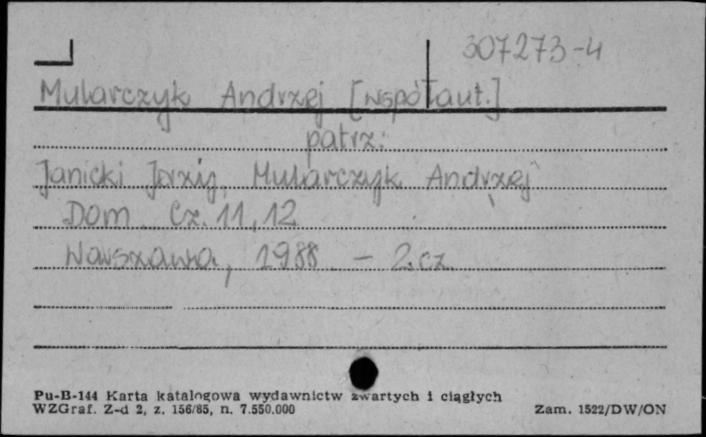 307273-4
Mularczyk Andrzej [współaut.]
patrz:
Janicki Jerzy, Mularczyk Andrzej
Dom. Cz. 11, 12
Warszawa, 1988 - 2 cz.
Pu-B-144 Karta katalogowa wydawnictw zwartych i ciągłych
WZGraf. Z-d 2, z. 156/85, n. 7.550.000
Zam. 1522/DW/ON